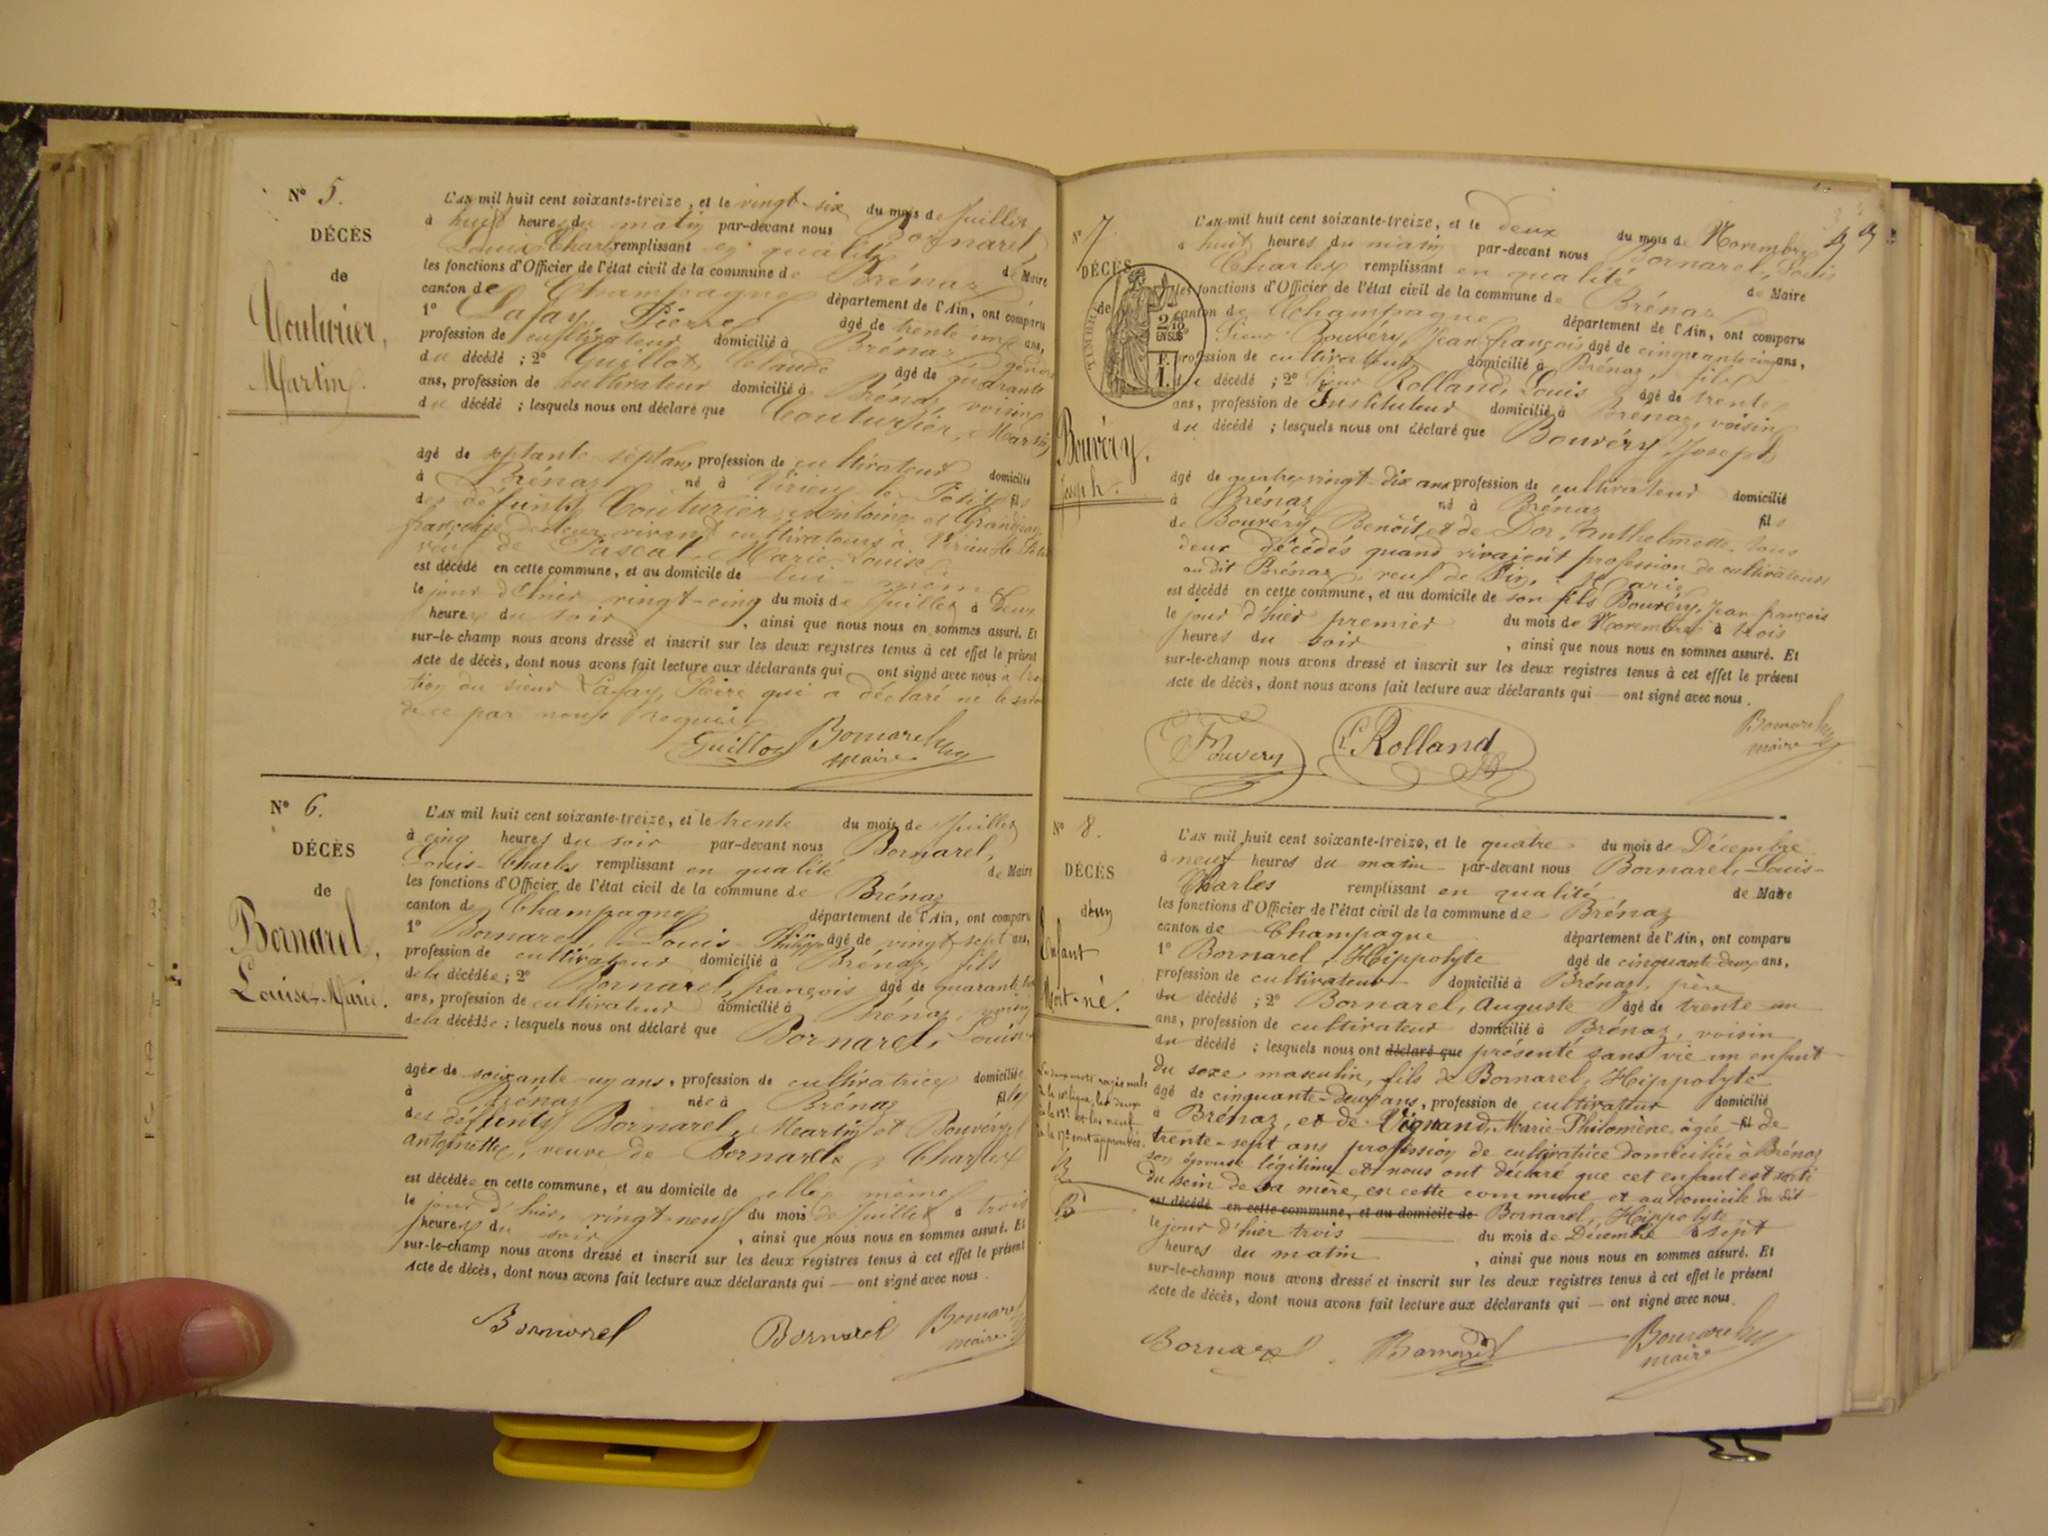 N° 5.
DÉCÈS
de
Couturier,
Martin.
L'AN mil huit cent soixante-treize, et le vingt-six du mois de Juillet
à huit heures du matin par-devant nous Bornarel
Louis Charles remplissant en qualité de Maire
les fonctions d'Officier de l'état civil de la commune de Brénaz
canton de Champagne département de l'Ain, ont comparu
1° Lafay, Pierre âgé de trente ans,
profession de cultivateur domicilié à Brénaz
du décédé ; 2° Guilloz, Claude âgé de quarante
ans, profession de cultivateur domicilié à Brénaz voisin
du décédé ; lesquels nous ont déclaré que Couturier, Martin
âgé de septante sept ans, profession de cultivateur domicilié
à Brénaz né à Virieu le Petit fils
des défunts Couturier, Antoine et
françoise de leur vivant cultivateurs à Virieu le Petit
veuf de Pascal, Marie Louise
est décédé en cette commune, et au domicile de lui-même
le jour d'hier vingt-cinq du mois de Juillet à deux
heures du soir , ainsi que nous nous en sommes assuré. Et
sur-le-champ nous avons dressé et inscrit sur les deux registres tenus à cet effet le présent
Acte de décès, dont nous avons fait lecture aux déclarants qui ont signé avec nous
du sieur Lafay, Pierre qui a déclaré ne le savoir
de ce par nous requis
Guilloz Bornarel
maire
N° 6.
DÉCÈS
de
Bornarel,
Louise-Marie.
L'AN mil huit cent soixante-treize, et le trente du mois de Juillet
à cinq heures du soir par-devant nous Bornarel,
Louis-Charles remplissant en qualité de Maire
les fonctions d'Officier de l'état civil de la commune de Brénaz
canton de Champagne département de l'Ain, ont comparu
1° Bornarel, Louis-Philippe âgé de vingt-sept ans,
profession de cultivateur domicilié à Brénaz, fils
de la décédée ; 2° Bornarel, françois âgé de quarante
ans, profession de cultivateur domicilié à Brénaz, voisin
de la décédée ; lesquels nous ont déclaré que Bornarel, Louise
âgée de soixante-un ans, profession de cultivatrice domiciliée
à Brénaz née à Brénaz fille
des défunts Bornarel, Martin et Bouvéry
antoinette, veuve de Bornarel, Charles
est décédée en cette commune, et au domicile de elle même
le jour d'hier, vingt-neuf du mois de Juillet à trois
heures du soir , ainsi que nous nous en sommes assuré. Et
sur-le-champ nous avons dressé et inscrit sur les deux registres tenus à cet effet le présent
Acte de décès, dont nous avons fait lecture aux déclarants qui — ont signé avec nous.
Bornarel Bornarel Bornarel
maire
N° 7.
DÉCÈS
de
TIMBRE
2/10
EN SUS
F.
1.
Bouvéry,
Joseph.
L'AN mil huit cent soixante-treize, et le deux du mois de Novembre
à huit heures du matin par-devant nous Bornarel, Louis
Charles remplissant en qualité de Maire
les fonctions d'Officier de l'état civil de la commune de Brénaz
canton de Champagne département de l'Ain, ont comparu
Sieur Bouvéry, Jean françois âgé de cinquante cinq ans,
profession de cultivateur domicilié à Brénaz, fils
du décédé ; 2° Sieur Rolland, Louis âgé de trente
ans, profession de Instituteur domicilié à Brénaz, voisin
du décédé ; lesquels nous ont déclaré que Bouvéry, Joseph
âgé de quatre-vingt-dix ans profession de cultivateur domicilié
à Brénaz né à Brénaz fils
de Bouvéry, Benoit et de Dor, Anthelmette tous
deux décédés quand vivaient profession de cultivateurs
au dit Brénaz, veuf de Marie
est décédé en cette commune, et au domicile de son fils Bouvéry, Jean françois
le jour d'hier premier du mois de Novembre à trois
heures du soir , ainsi que nous nous en sommes assuré. Et
sur-le-champ nous avons dressé et inscrit sur les deux registres tenus à cet effet le présent
Acte de décès, dont nous avons fait lecture aux déclarants qui — ont signé avec nous.
Bouvery L. Rolland Bornarel
maire
N° 8.
DÉCÈS
d'un
Enfant
Mort-né.
L'AN mil huit cent soixante-treize, et le quatre du mois de Décembre
à neuf heures du matin par-devant nous Bornarel, Louis-
Charles remplissant en qualité de Maire
les fonctions d'Officier de l'état civil de la commune de Brénaz
canton de Champagne département de l'Ain, ont comparu
1° Bornarel, Hippolyte âgé de cinquante-deux ans,
profession de cultivateur domicilié à Brénaz, père
du décédé ; 2° Bornarel, Auguste âgé de trente-un
ans, profession de cultivateur domicilié à Brénaz, voisin
du décédé ; lesquels nous ont déclaré que présenté sans vie un enfant
du sexe masculin, fils de Bornarel, Hippolyte
âgé de cinquante-deux ans, profession de cultivateur domicilié
à Brénaz, et de Vignand, Marie-Philomène, âgée fil de
trente-sept ans profession de cultivatrice domiciliée à Brénaz
son épouse légitime et nous ont déclaré que cet enfant est sorti
du sein de sa mère, en cette commune et au domicile du dit
est décédé en cette commune, et au domicile de Bornarel, Hippolyte
le jour d'hier trois du mois de Décembre à sept
heures du matin , ainsi que nous nous en sommes assuré. Et
sur-le-champ nous avons dressé et inscrit sur les deux registres tenus à cet effet le présent
Acte de décès, dont nous avons fait lecture aux déclarants qui — ont signé avec nous.
Bornarel Bornarel Bornarel
maire